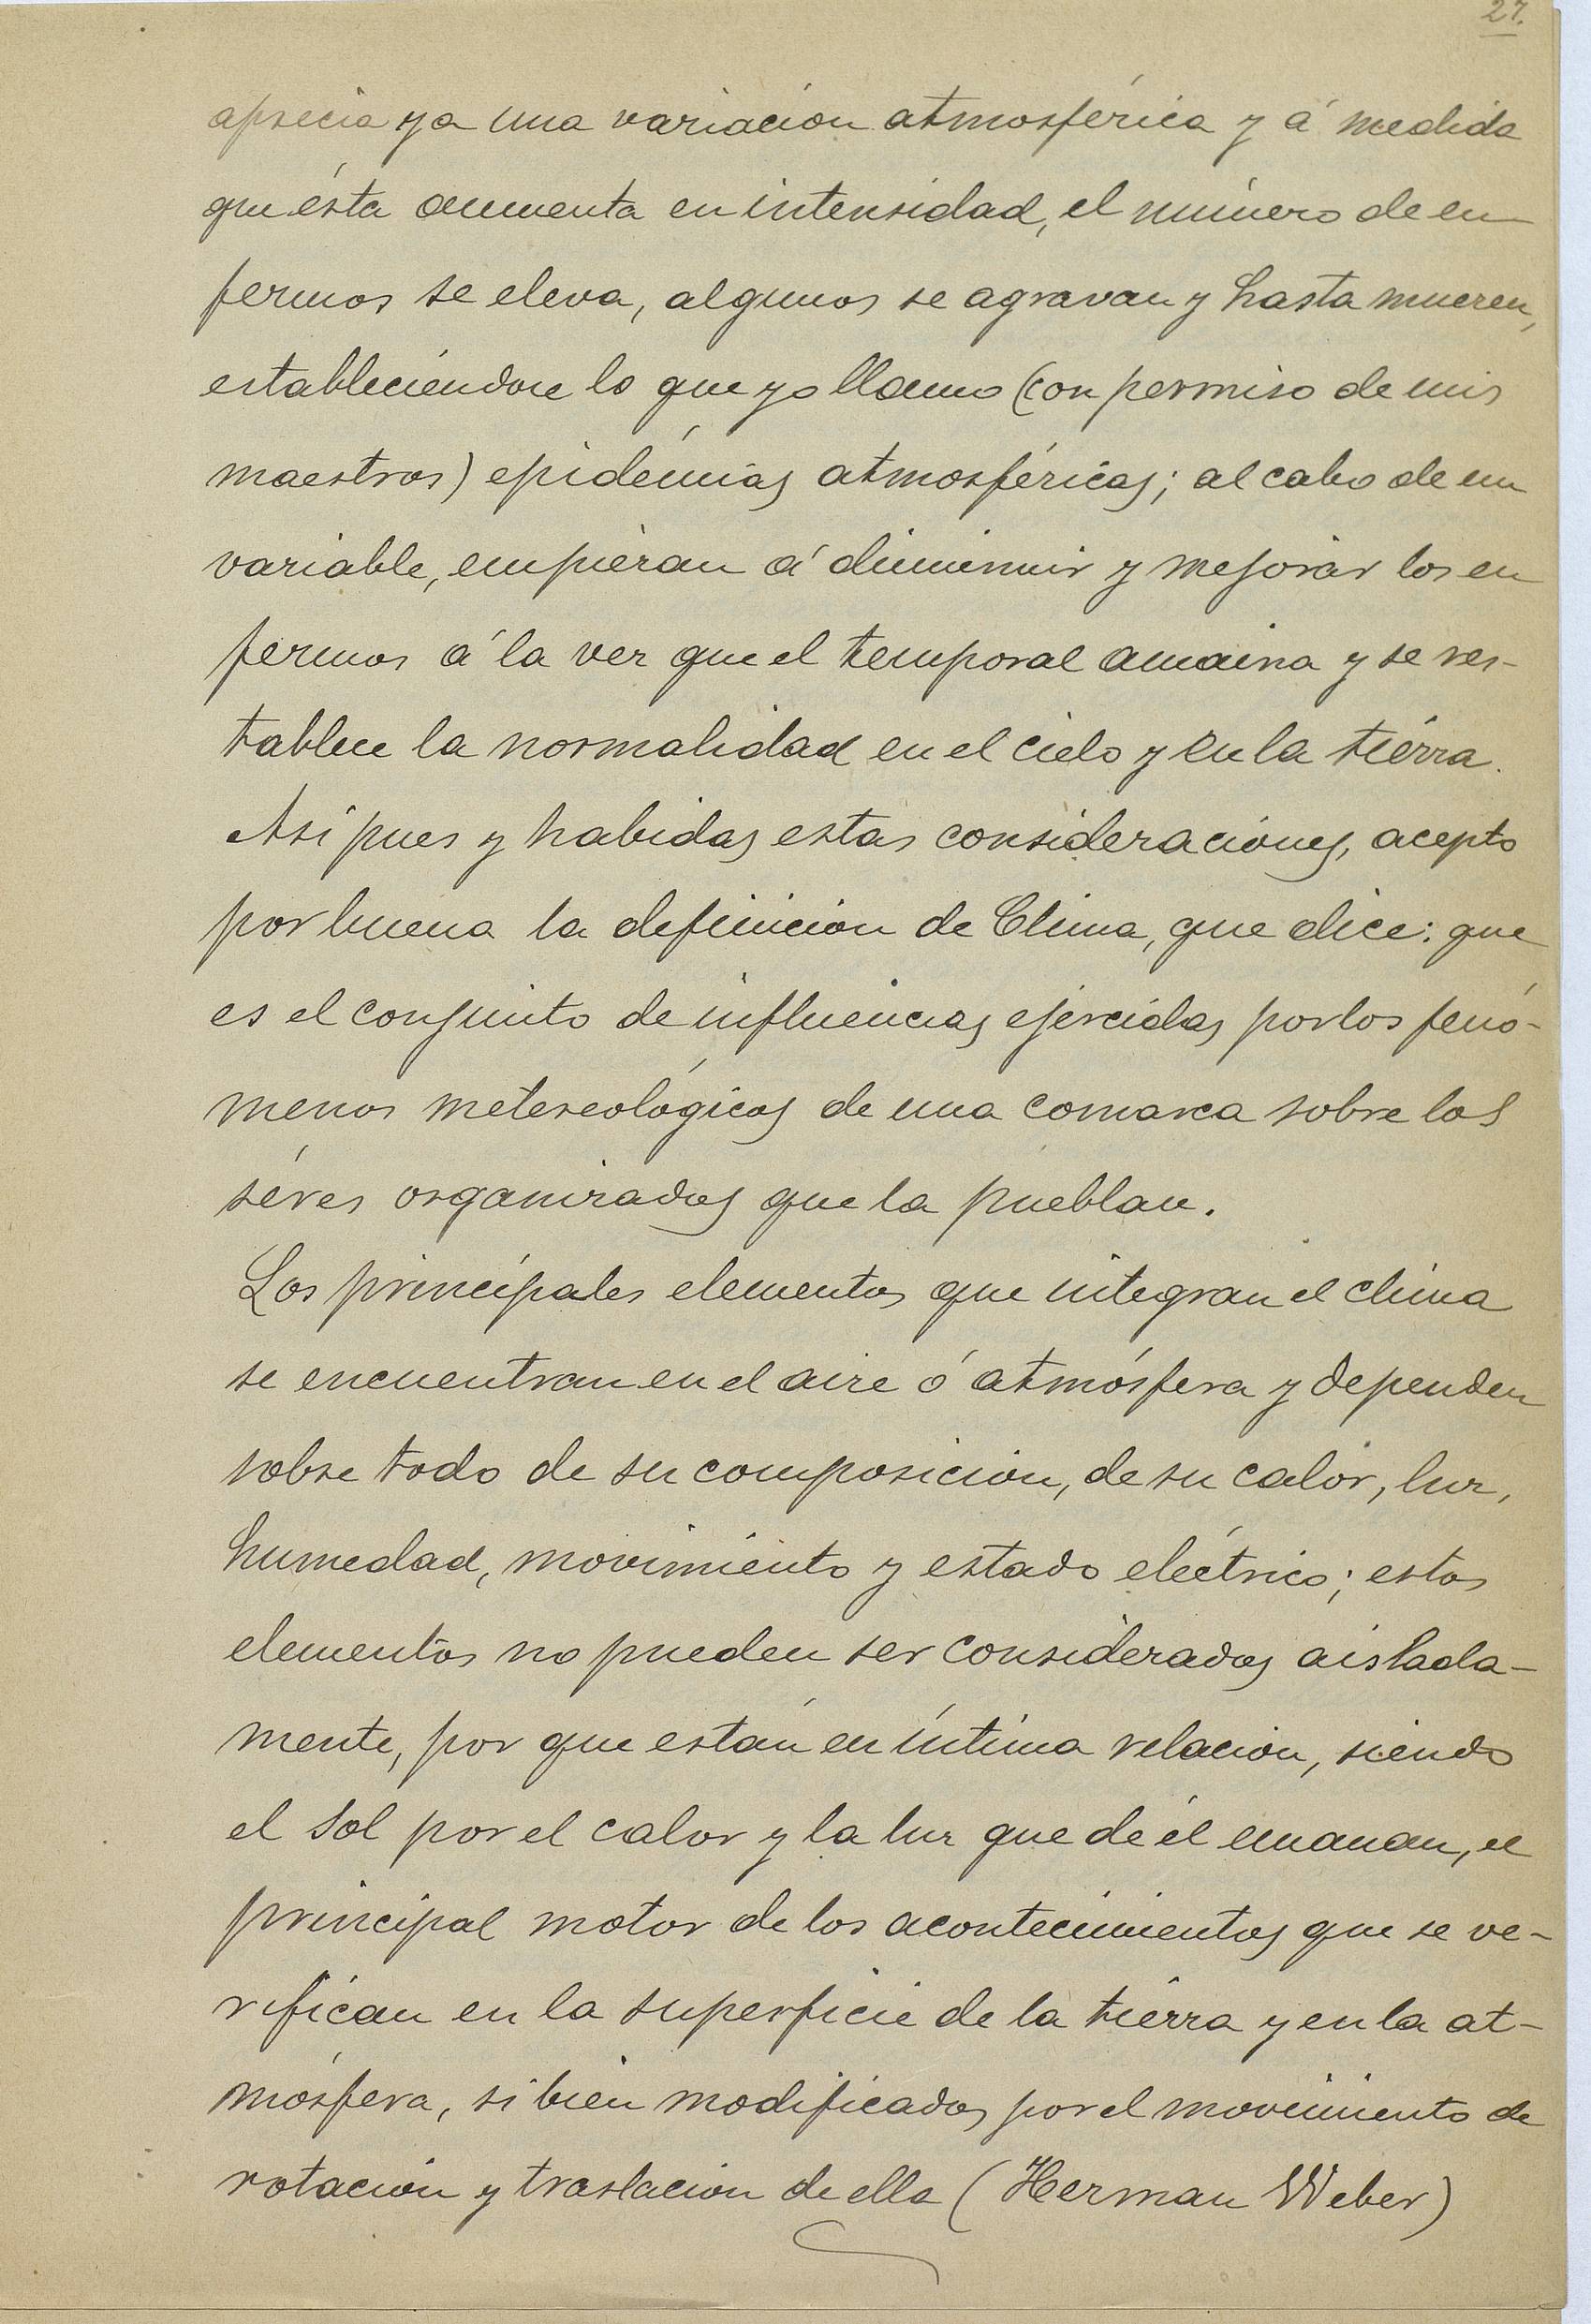 27.
aprecia ya una variación atmosférica y á medida
que ésta aumenta en intensidad, el número de en
fermos se eleva, algunos se agravan y hasta mueren,
estableciéndose lo que yo llamo (con permiso de mis
maestros) epidémias atmosféricas; al cabo de un
variable, empiezan á diminuir y mejorar los en
fermos á la vez que el temporal amaina y se res-
tablece la normalidad en el cielo y en la tiérra.
Asi pues y habidas estas consideraciones, acepto
por buena la definición de Clima, que dice: que
es el conjunto de influencias ejercidas por los fenó-
menos metereológicos de una comarca sobre los
séres organizados que la pueblan.
Los principales elementos que integran el clima
se encuentran en el aire ó atmósfera y dependen
sobre todo de su composición, de su calor, luz,
humedad, movimiento y estado eléctrico; estos
elementos no pueden ser considerados aislada-
mente, por que están en íntima relación, siendo
el sol por el calor y la luz que de él emanan, el
principal motor de los acontecimientos que se ve-
rifican en la superficie de la tiérra y en la at-
mósfera, si bien modificados por el movimiento de
rotación y traslación de ella (Herman Weber)